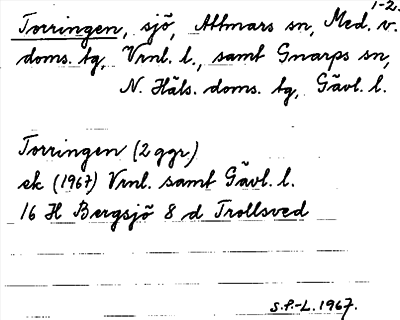 1-2.
Torringen, sjö, Attmars sn, Med. v.
doms. tg, Vrnl. l., samt Gnarps sn,
N. Häls. doms. tg, Gävl. l.
Torringen (2 ggr)
ek (1967) Vrnl. samt Gävl. l.
16 H Bergsjö 8 d Trollsved
S.P.-L. 1967.